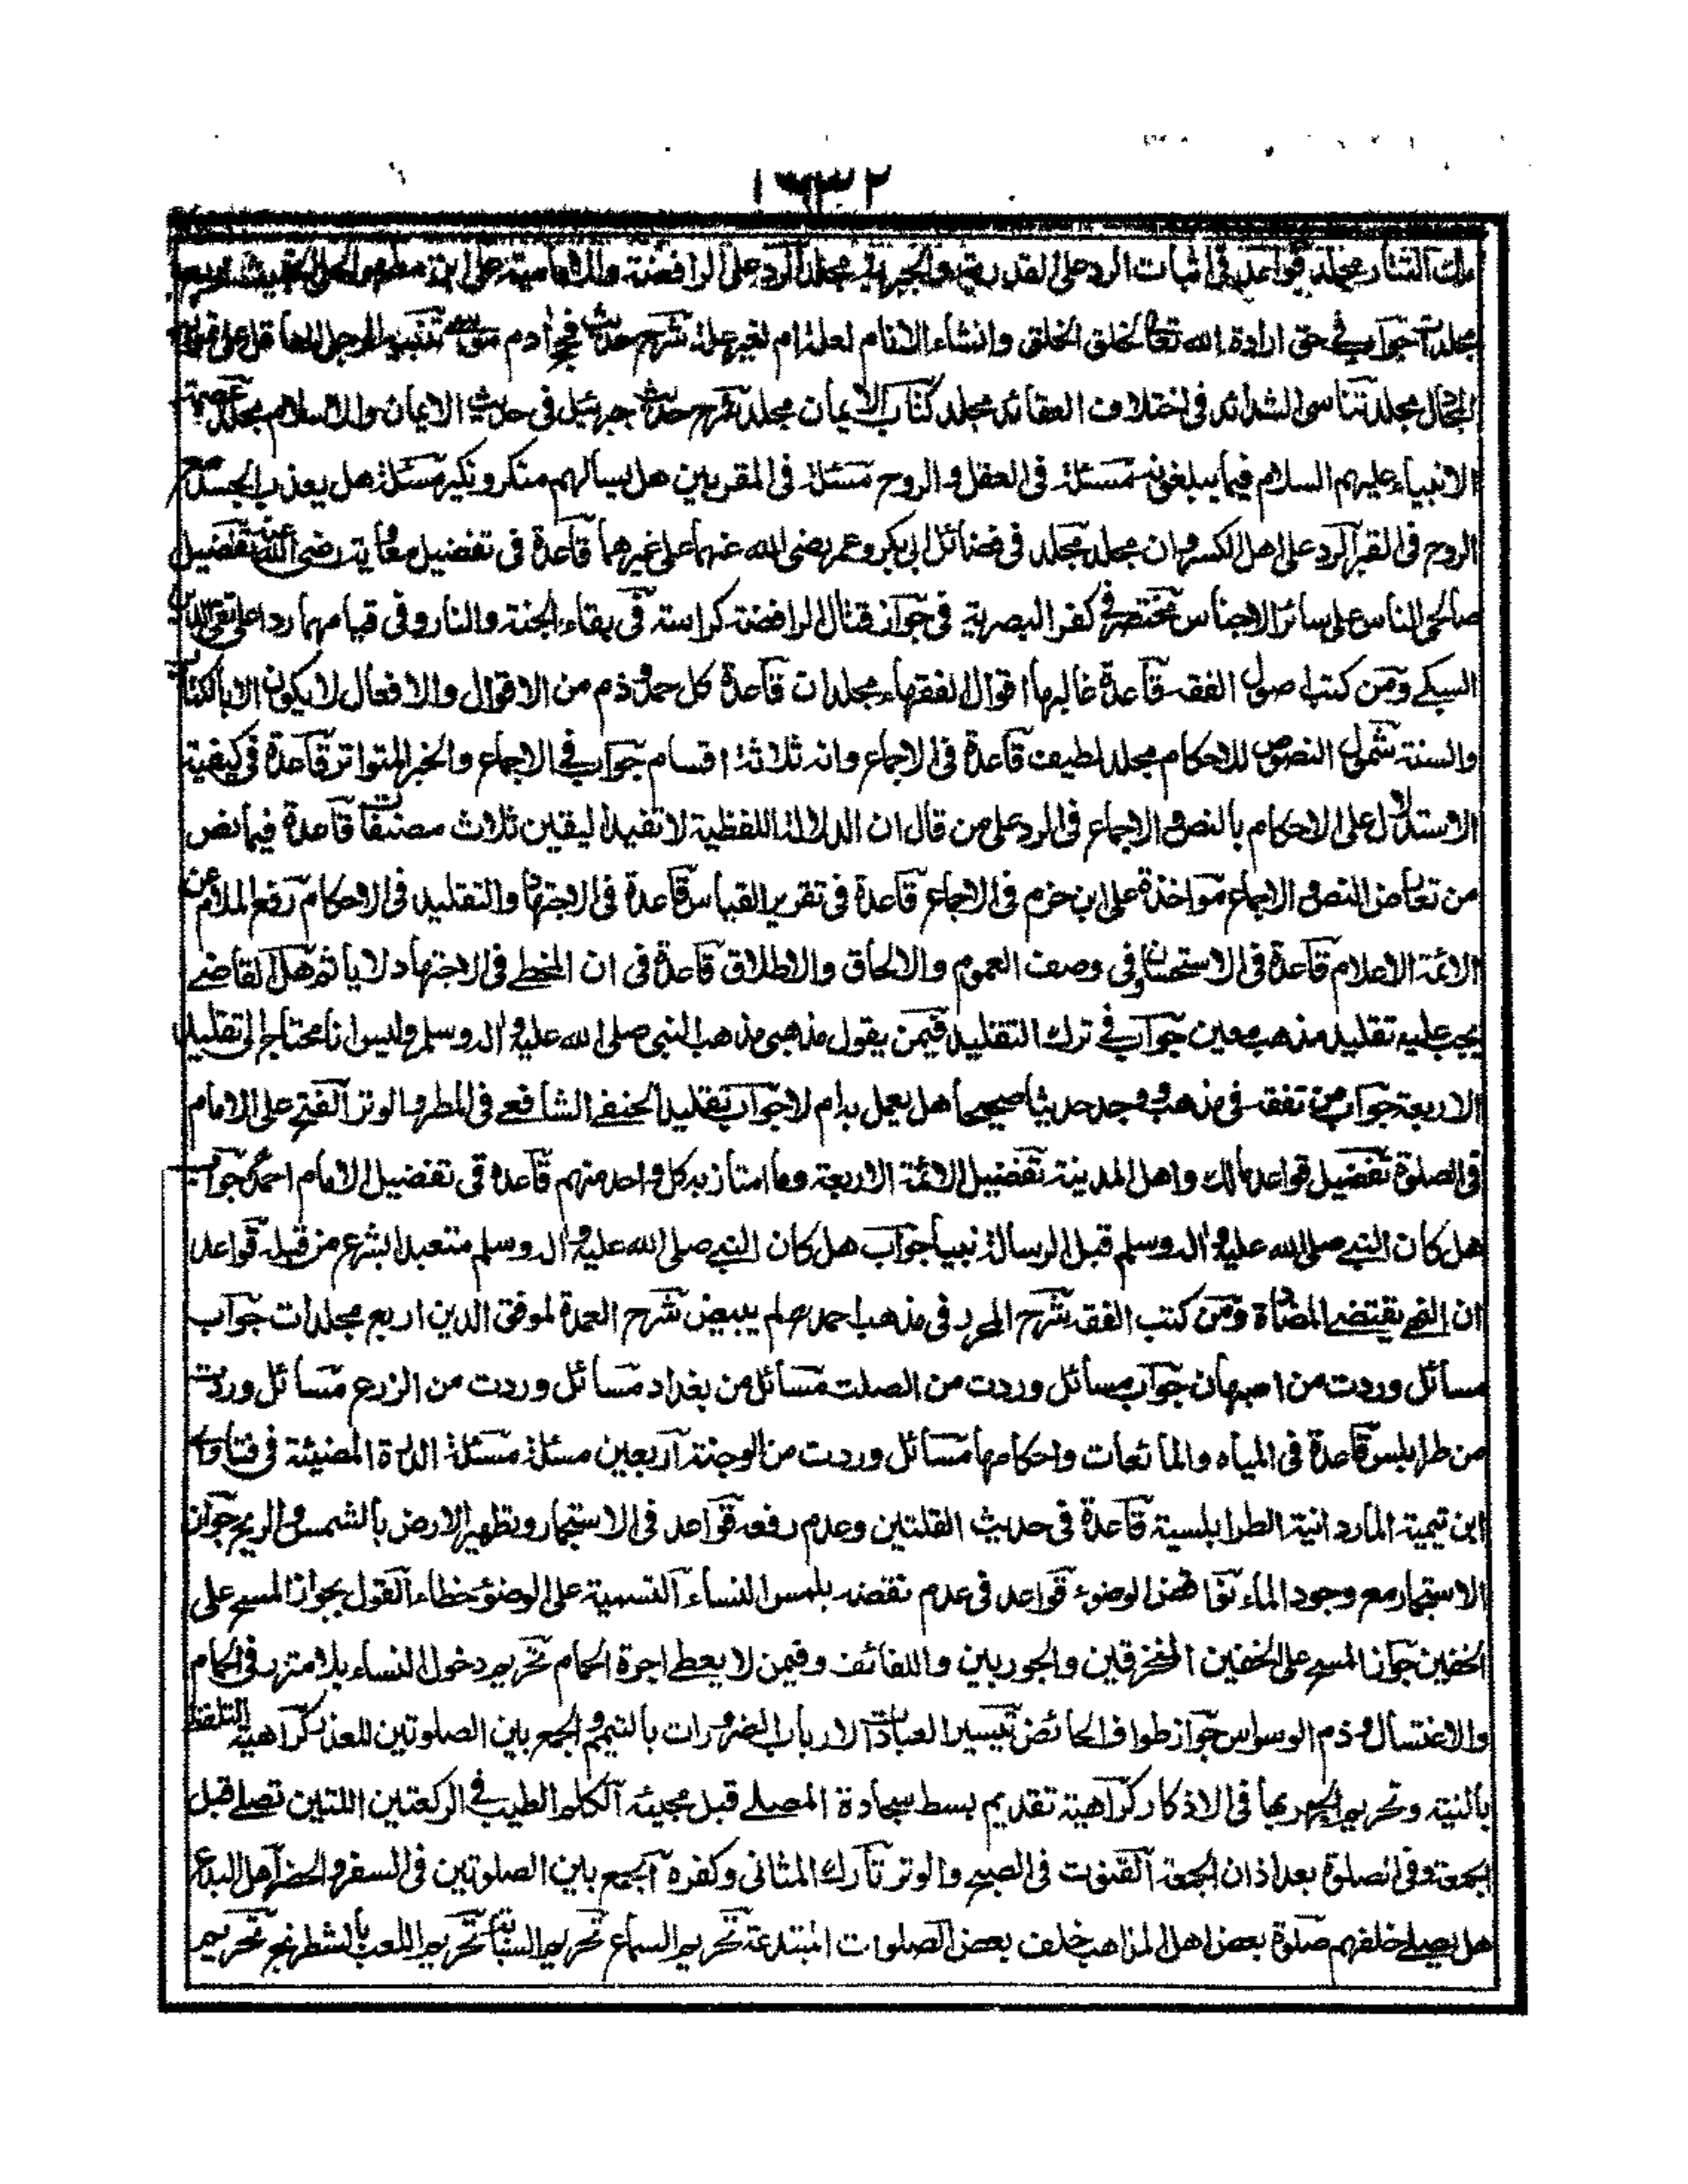 ١٦٣٢
ملك التتار مجلد قواعد فى اثبات الرد على القدرية والجبرية مجلد الرد على الرافضة والامامية على ابن مطهر
مجلدات جواب فى حق ارادة الله تعالى لخلق الخلق وانشاء الانام لعلة ام لغير علة شرح حديث فحج ادم موسى تنبيه الرجل العاقل على تمويه
الجمال مجلد تناسى الشدائد فى اختلاف العقائد مجلد كتاب الايمان مجلد شرح حديث جبرئيل فى حديث الايمان والاسلام مجلد عصمة
الانبياء عليهم السلام فيما يبلغونه مسئلة فى العقل والروح مسئلة فى المقربين هل يسألهم منكر ونكير مسئلة هل يعذب الجسد مع
الروح فى القبر الرد على اهل الكسروان مجلد مجلد فى فضائل ابى بكر وعمر رضى الله عنهما على غيرهما قاعدة فى تفضيل معاوية رضى الله عنه تفضيل
صالحى الناس على سائر الاجناس مختصر فى كفر النصرية فى جواز قتال الرافضة كراسة فى بقاء الجنة والنار وفى قيامهما ردا على تقى الدين
السبكے ومن كتب اصول الفقه قاعدة غالبها اقوال الفقهاء مجلدات قاعدة كل حمد وذم من الاقوال والافعال لا يكون الا بالكتاب
والسنة شمول النصوص للاحكام مجلد لطيف قاعدة فى الاجماع وانه ثلاثة اقسام جواب فى الاجماع والخبر المتواتر قاعدة فى كيفية
الاستدلال على الاحكام بالنص والاجماع فى الرد على من قال ان الدلالة اللفظية لا تفيد اليقين ثلاث مصنفات قاعدة فيما نص
من تعارض النص والاجماع مواخذة على ابن حزم فى الاجماع قاعدة فى تقرير القياس قاعدة فى الاجتهاد والتقليد فى الاحكام رفع الملام عن
الائمة الاعلام قاعدة فى الاستحسان وفى وصف العموم والالحاق والاطلاق قاعدة فى ان المخطى فى الاجتهاد لا ياثم هل القاضے
يجب عليه تقليد مذهب معين جواب فى ترك التقليد فيمن يقول مذهبى مذهب النبى صلى الله عليه واله وسلم وليس انا محتاج الى تقليد
الاربعة جواب من تفقه فى مذهب ووجد حديثا صحيحا هل يعمل به ام لا جواب تقليد الحنفى الشافعے فى المطر والوتر الفتح على الامام
فى الصلوة تفضيل قواعد مالك واهل المدينة تفضيل الائمة الاربعة وما امتاز به كل واحد منهم قاعدة فى تفضيل الامام احمد جواب
هل كان النبے صلى الله عليه واله وسلم قبل الرسالة نبيا جواب هل كان النبے صلى الله عليه واله وسلم متعبدا بشرع من قبله قواعد
ان النهے يقتضے المضادة ومن كتب الفقه شرح المحرر فى مذهب احمد ولم يبيض شرح العمدة لموفق الدين اربع مجلدات جواب
مسائل وردت من اصبهان جواب مسائل وردت من الصلت مسائل من بغداد مسائل وردت من الزرع مسائل وردت
من طرابلس قاعدة فى المياه والمائعات واحكامها مسائل وردت من الوجنة اربعين مسئلة مسئلة الدرة المضيئة فى فتاوى
ابن تيمية الماردانية الطرابلسية قاعدة فى حديث القلتين وعدم رفعه قواعد فى الاستجمار وتطهير الارض بالشمس والريح جواز
الاستجمار مع وجود الماء نواقض الوضوء قواعد فى عدم نقضه بلمس النساء التسمية على الوضوء خطاء القول بجواز المسح على
الخفين جواز المسح على الخفين المنخرقين والجوربين واللفائف وفيمن لا يعطے اجرة الحمام تحريم دخول النساء بلا متزر فى الحمام
والاغتسال وذم الوسواس جواز طواف الحائض تيسير العبادات لارباب الضرورات بالتيمم والجمع بين الصلوتين للعذر كراهية التلفظ
بالنية وتحريم الجهر بها فى الاذكار كراهية تقديم بسط سجادة المصلے قبل مجيئه الكلم الطيب فى الركعتين اللتين تصلے قبل
الجمعة وفى الصلوة بعد اذان الجمعة القنوت فى الصبح والوتر تارك المثانى وكفره الجمع بين الصلوتين فى السفر والحضر اهل البدع
هل يصلے خلفهم صلوة بعض اهل المذاهب خلف بعض الصلوات المبتدعة تحريم السماع تحريم الشبابة تحريم اللعب بالشطرنج تحريم